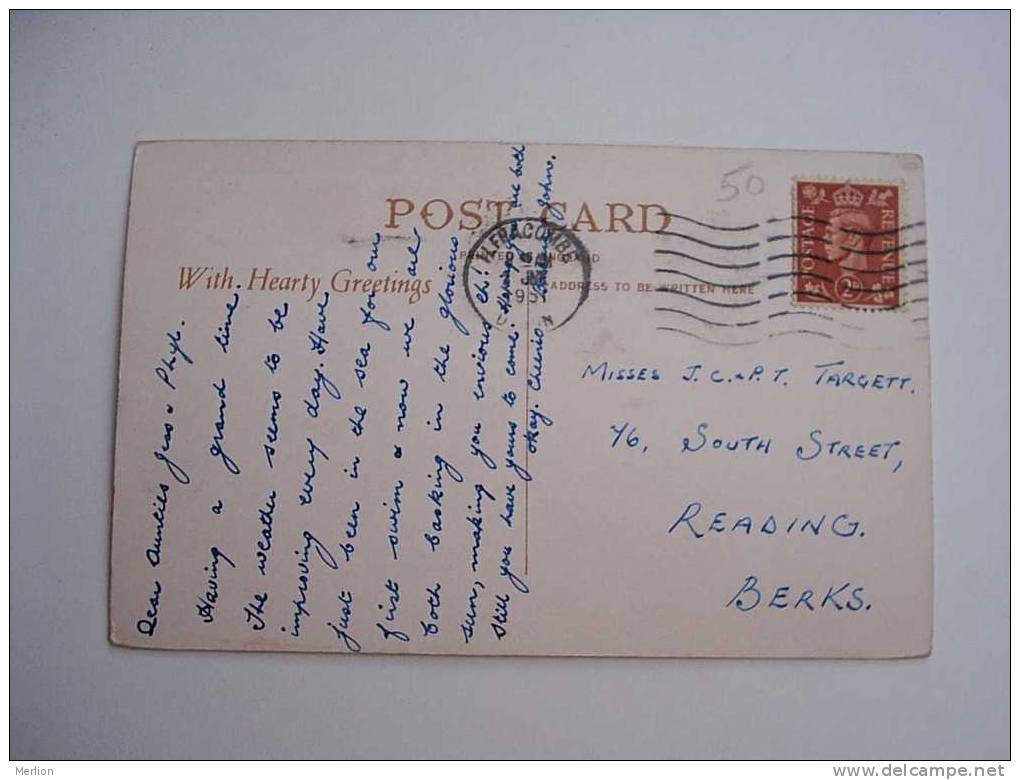 50
POST CARD
PRINTED IN ENGLAND
With Hearty Greetings
ADDRESS TO BE WRITTEN HERE
ILFRACOMBE
195
POSTAGE
REVENUE
2D
Dear Aunties Jess & Phyl.
Having a grand time.
The weather seems to be
improving every day. Have
just been in the sea for our
first swim & now we are
both basking in the glorious
sun, making you envious eh!
Still you have yours to come. Happy we both
okay. Cheerio John.
MISSES J.C. & P.T. TARGETT.
76, SOUTH STREET,
READING.
BERKS.
Merlion
delcampe.net